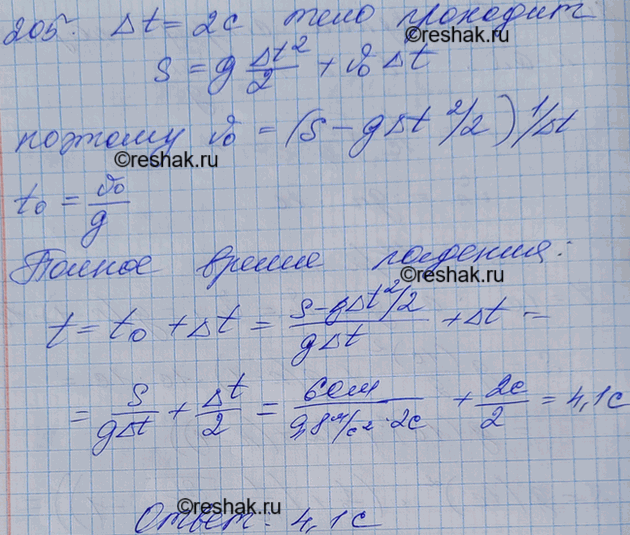 205. Δt = 2с тело проходит
©reshak.ru
S = g Δt²/2 + v₀ Δt
поэтому v₀ = (S - gΔt²/2) 1/Δt
©reshak.ru
t₀ = v₀/g
©reshak.ru
Полное время падения:
©reshak.ru
t = t₀ + Δt = (S - gΔt²/2)/(gΔt) + Δt =
= S/(gΔt) + Δt/2 = 60м/(9,8м/с² · 2с) + 2с/2 = 4,1с
©reshak.ru
Ответ: 4,1с